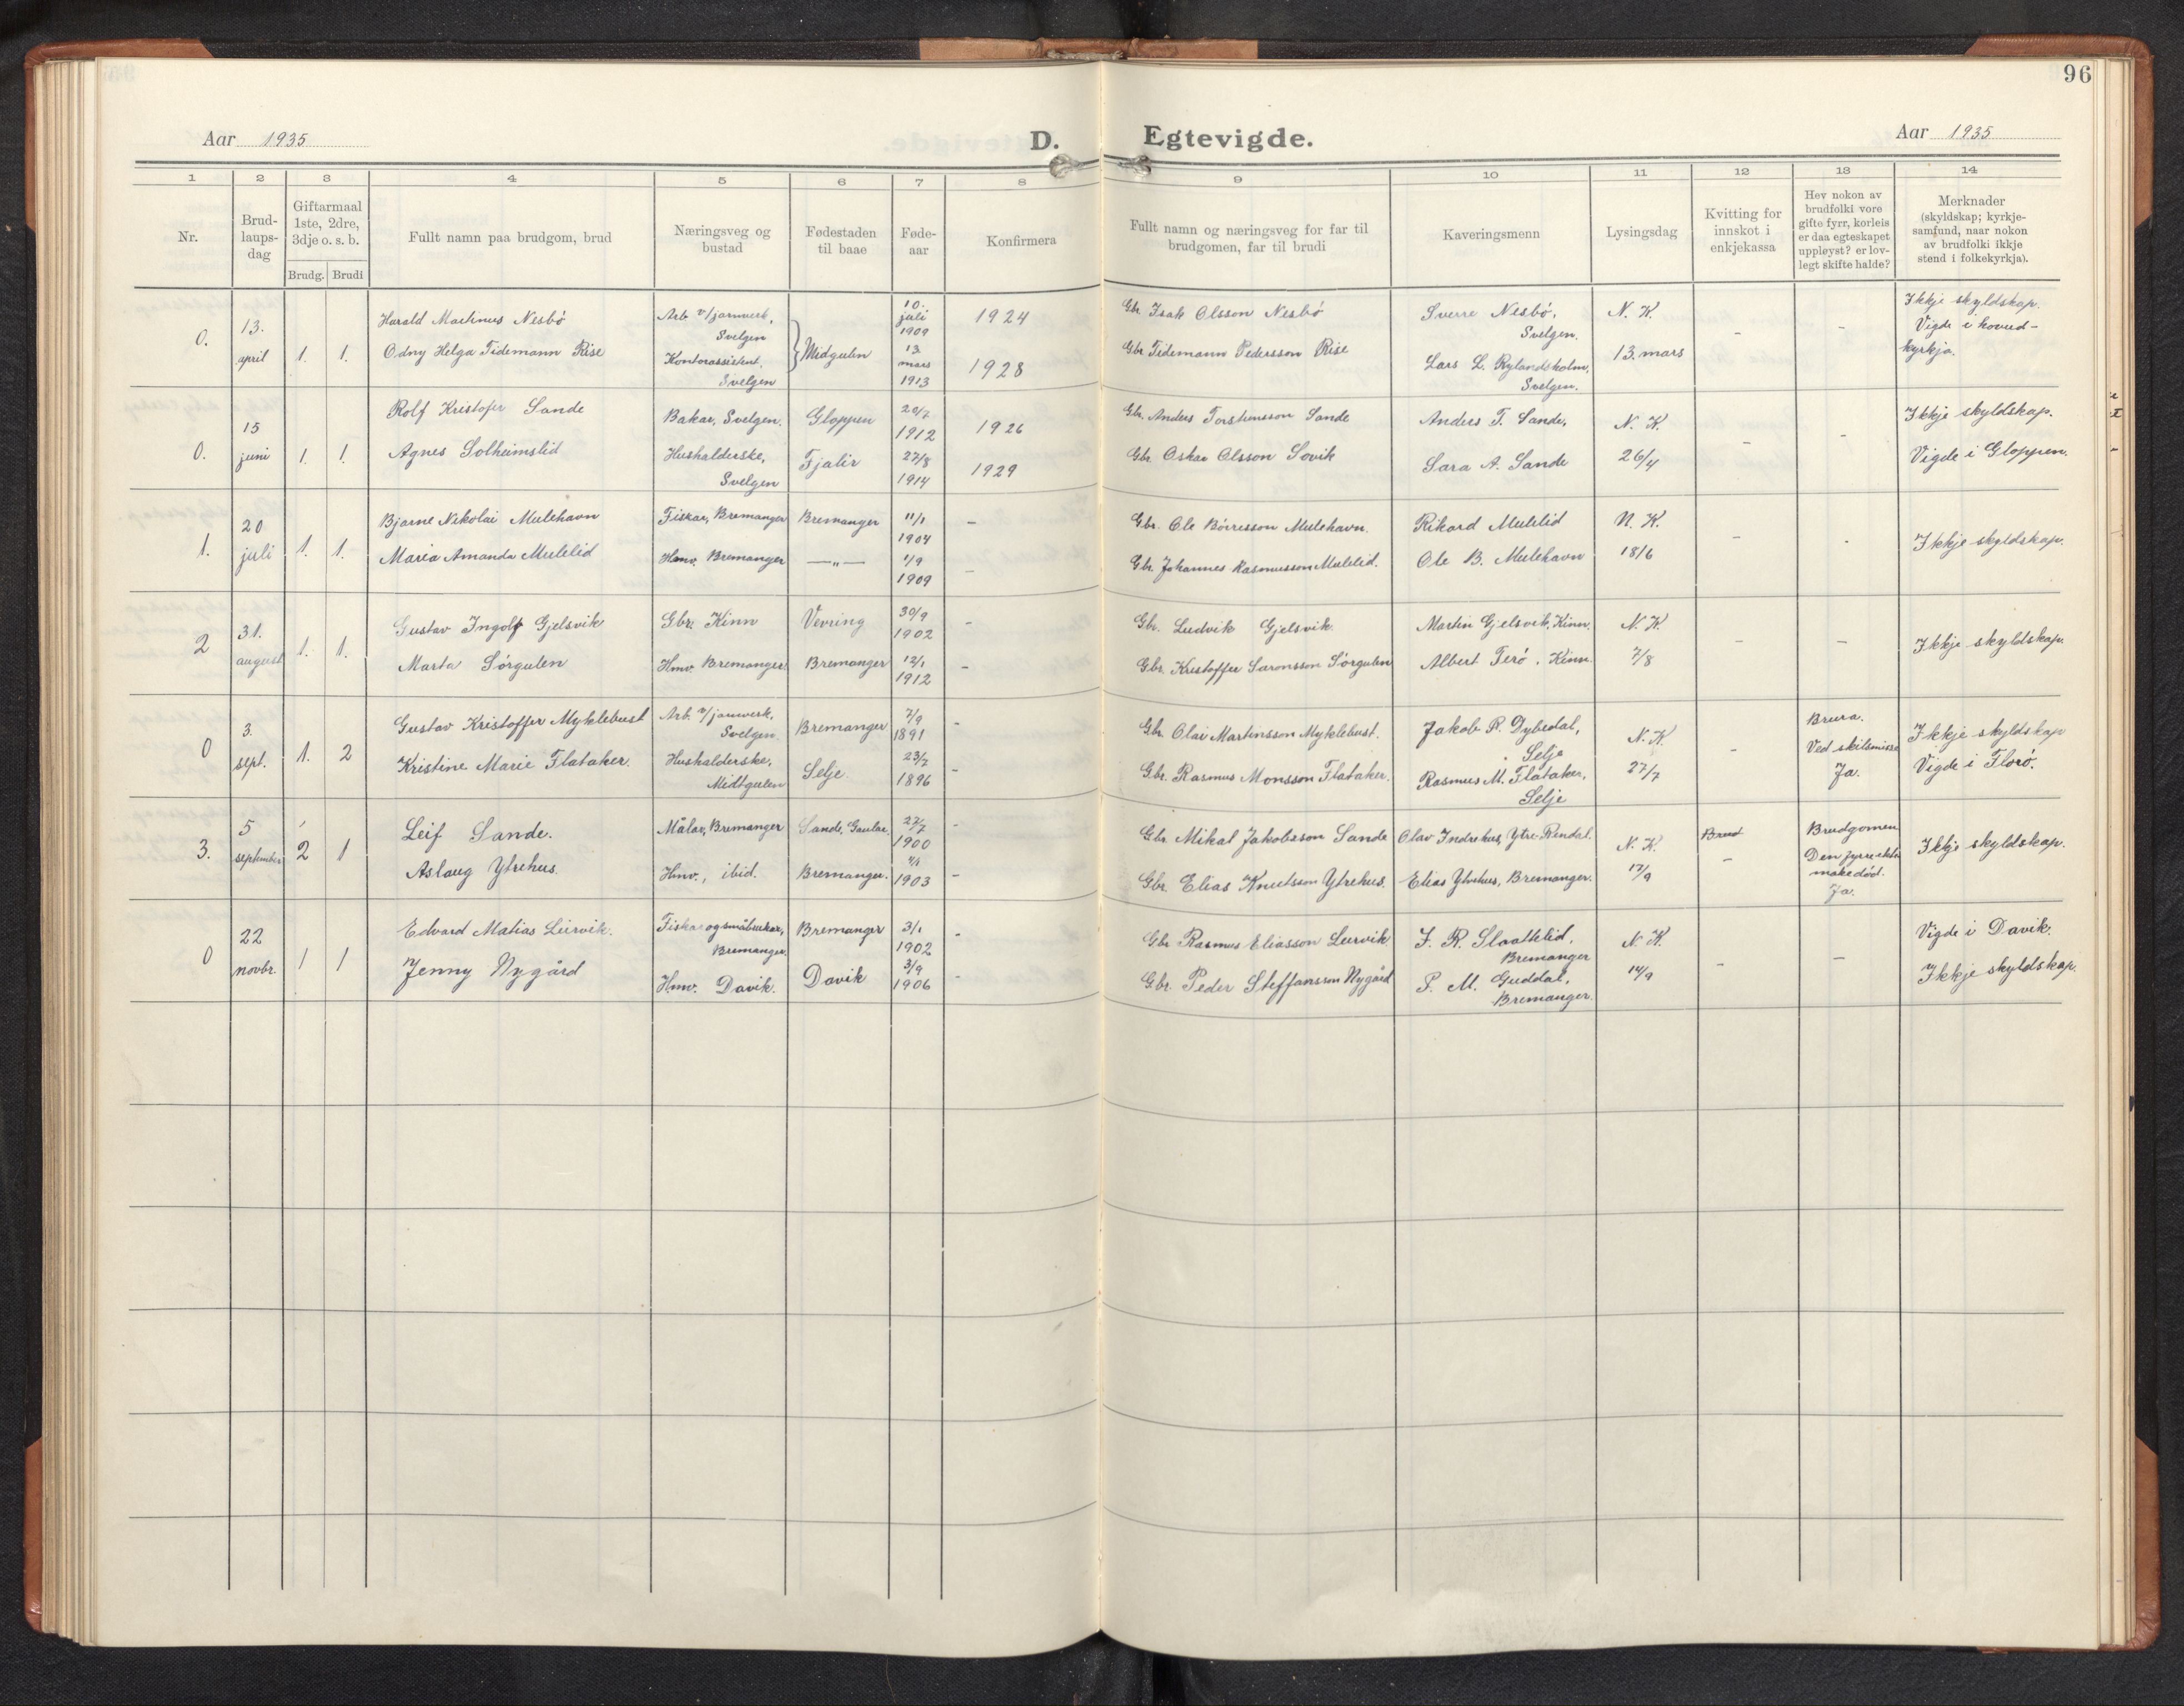 96
Aar 1935
D.
Egtevigde.
Aar 1935
1 2 3 4 5 6 7 8 9 10 11 12 13 14
Nr.
Brud-
laups-
dag
Giftarmaal
1ste, 2dre,
3dje o. s. b.
Brudg. Brudi
Fullt namn paa brudgom, brud
Næringsveg og
bustad
Fødestaden
til baae
Føde-
aar
Konfirmera
Fullt namn og næringsveg for far til
brudgomen, far til brudi
Kaveringsmenn
Lysingsdag
Kvitting for
innskot i
enkjekassa
Hev nokon av
brudfolki vore
gifte fyrr, korleis
er daa egteskapet
uppløyst? er lov-
legt skifte halde?
Merknader
(skyldskap; kyrkje-
samfund, naar nokon
av brudfolki ikkje
stend i folkekyrkja).
0.
13.
april
1. 1.
Harald Martinus Nesbö
Odny Helga Tidemann Rise
Arb. v/jarnverk,
Svelgen
Kontorassistent,
Svelgen
Midgulen
10.
juli
1909
13.
mars
1913
1924
1928
Gbr. Isak Olsson Nesbö
Gbr. Tidemann Pedersson Rise
Sverre Nesbö,
Svelgen.
Lars L. Rylandsholm,
Svelgen.
N. K.
13. mars
-
-
Ikkje skyldskap.
Vigde i hovud-
kyrkja.
0.
15
juni
1. 1.
Rolf Kristofer Sande
Agnes Solheimslid
Bakar, Svelgen.
Hushalderske,
Svelgen
Gloppen
Fjalir
20/7
1912
27/8
1914
1926
1929
Gbr. Anders Torsteinsson Sande
Gbr. Oskar Olsson Sovik
Anders T. Sande,
Sara A. Sande
N. K.
26/4
-
-
Ikkje skyldskap.
Vigde i Gloppen.
1.
20
juli
1. 1.
Bjarne Nikolai Mulehavn
Maria Amanda Mulelid
Fiskar, Bremanger
Hmv. Bremanger
Bremanger
—„—
11/1
1904
1/9
1909
-
-
Gbr. Ole Börresson Mulehavn.
Gbr. Johannes Rasmusson Mulelid.
Rikard Mulelid
Ole B. Mulehavn
N. K.
18/6
-
-
Ikkje skyldskap.
2
31.
august
1. 1.
Gustav Ingolf Gjelsvik
Marta Sörgulen
Gbr. Kinn
Hmv. Bremanger
Vevring
Bremanger
30/9
1902
12/1
1912
-
-
Gbr. Ludvik Gjelsvik.
Gbr. Kristoffer Saronsson Sörgulen
Martin Gjelsvik, Kinn.
Albert Terö, Kinn.
N. K.
7/8
-
-
Ikkje skyldskap.
0
3.
sept.
1. 2
Gustav Kristoffer Myklebust
Kristine Marie Flataker.
Arb. v/jarnverk,
Svelgen.
Hushalderske,
Midtgulen
Bremanger
Selje
7/9
1891
23/7
1896
-
-
Gbr. Olai Martinsson Myklebust.
Gbr. Rasmus Monsson Flataker.
Jakob R. Dybedal,
Selje
Rasmus M. Flataker,
Selje
N. K.
27/7
-
Brura.
Ved skilsmisse
Ja.
Ikkje skyldskap
Vigde i Florö.
3.
5
september
2 1
Leif Sande.
Aslaug Ytrehus.
Målar, Bremanger
Hmv., ibid.
Sande, Gaular.
Bremanger.
27/7
1900
1903
-
-
Gbr. Mikal Jakobsson Sande
Gbr. Elias Knutsson Ytrehus.
Olav Indrehus, Ytre Rendal.
Elias Ytrehus, Bremanger.
N. K.
Brud
-
Brudgomen
Den fyrre ekte-
make död.
Ja.
Ikkje skyldskap.
0
22
novbr.
1 1
Edvard Matias Leirvik.
Jenny Nygård
Fiskar og småbrukar,
Bremanger.
Hmv. Davik.
Bremanger
Davik
3/1
1902
3/9
1906
-
-
Gbr. Rasmus Eliasson Leirvik
Gbr. Peder Steffansson Nygård
J. R. Slaattelid,
Bremanger
P. M. Guddal,
Bremanger.
N. K.
14/9
-
-
Vigde i Davik.
Ikkje skyldskap.